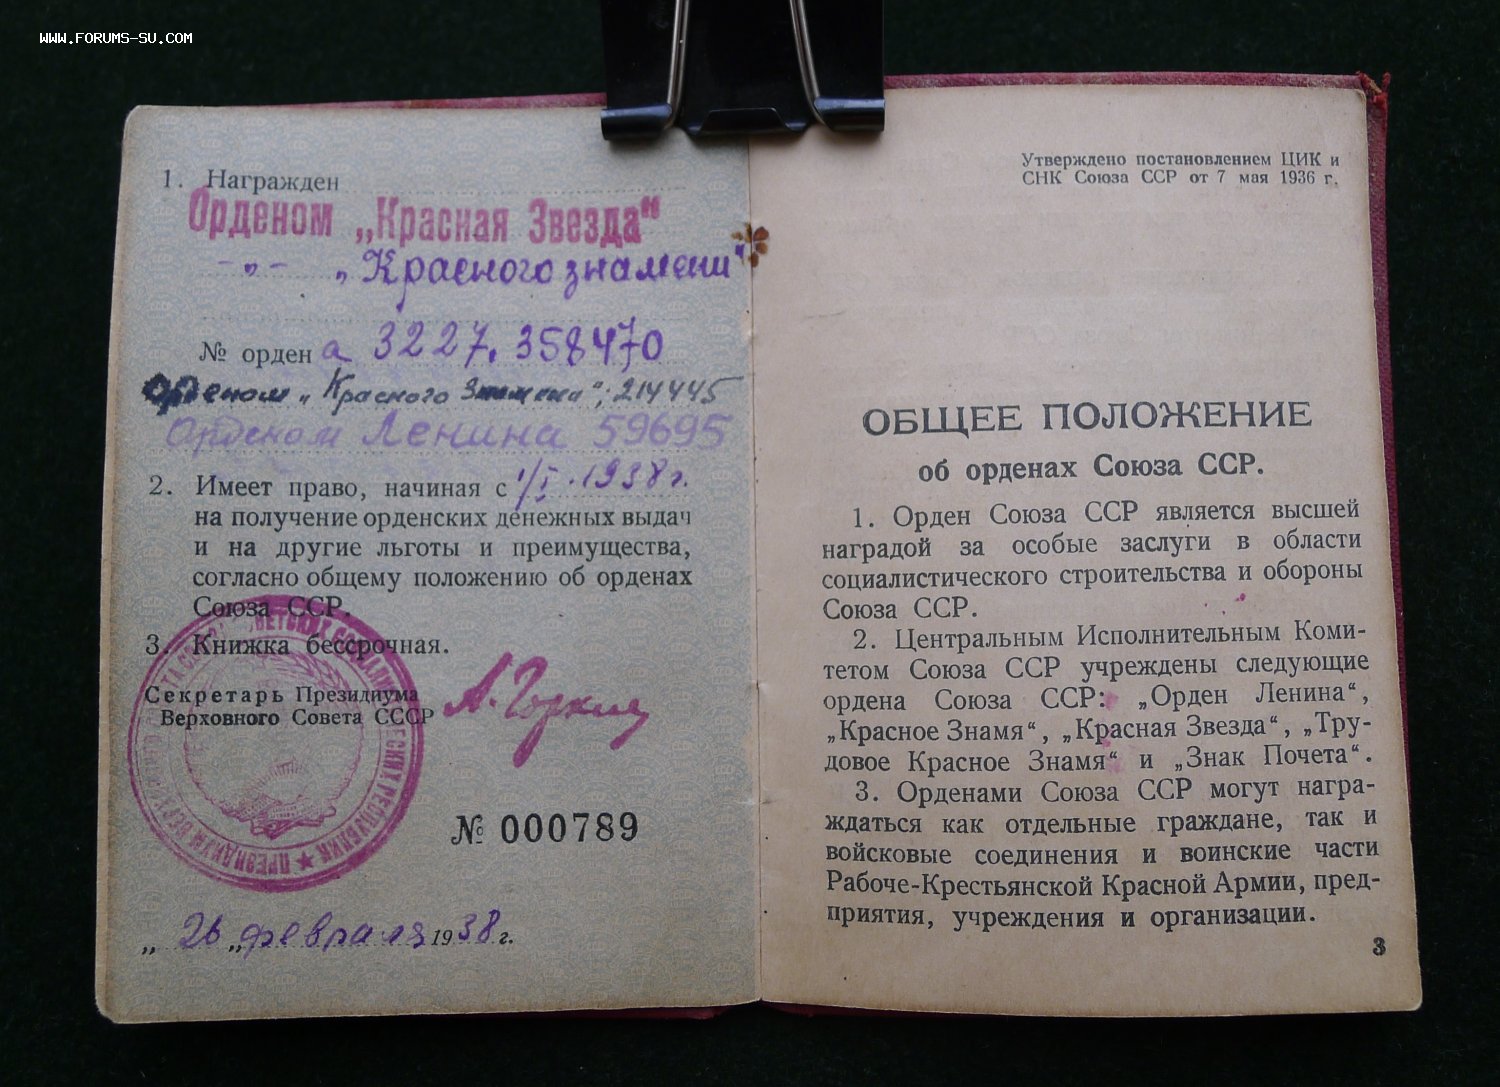 WWW.FORUMS-SU.COM
1. Награжден
Орденом „Красная Звезда“
-„- „Красного знамени“
№ орден а 3227, 358470
Орденом „Красного Знамени“; 214445
Орденом Ленина 59695
2. Имеет право, начиная с 1/I.1938 г.
на получение орденских денежных выдач
и на другие льготы и преимущества,
согласно общему положению об орденах
Союза ССР.
3. Книжка бессрочная.
Секретарь Президиума
Верховного Совета СССР А. Горкин
№ 000789
„26„ февраля 1938 г.
Утверждено постановлением ЦИК и
СНК Союза ССР от 7 мая 1936 г.
ОБЩЕЕ ПОЛОЖЕНИЕ
об орденах Союза ССР.
1. Орден Союза ССР является высшей
наградой за особые заслуги в области
социалистического строительства и обороны
Союза ССР.
2. Центральным Исполнительным Коми-
тетом Союза ССР учреждены следующие
ордена Союза ССР: „Орден Ленина“,
„Красное Знамя“, „Красная Звезда“, „Тру-
довое Красное Знамя“ и „Знак Почета“.
3. Орденами Союза ССР могут награ-
ждаться как отдельные граждане, так и
войсковые соединения и воинские части
Рабоче-Крестьянской Красной Армии, пред-
приятия, учреждения и организации.
3